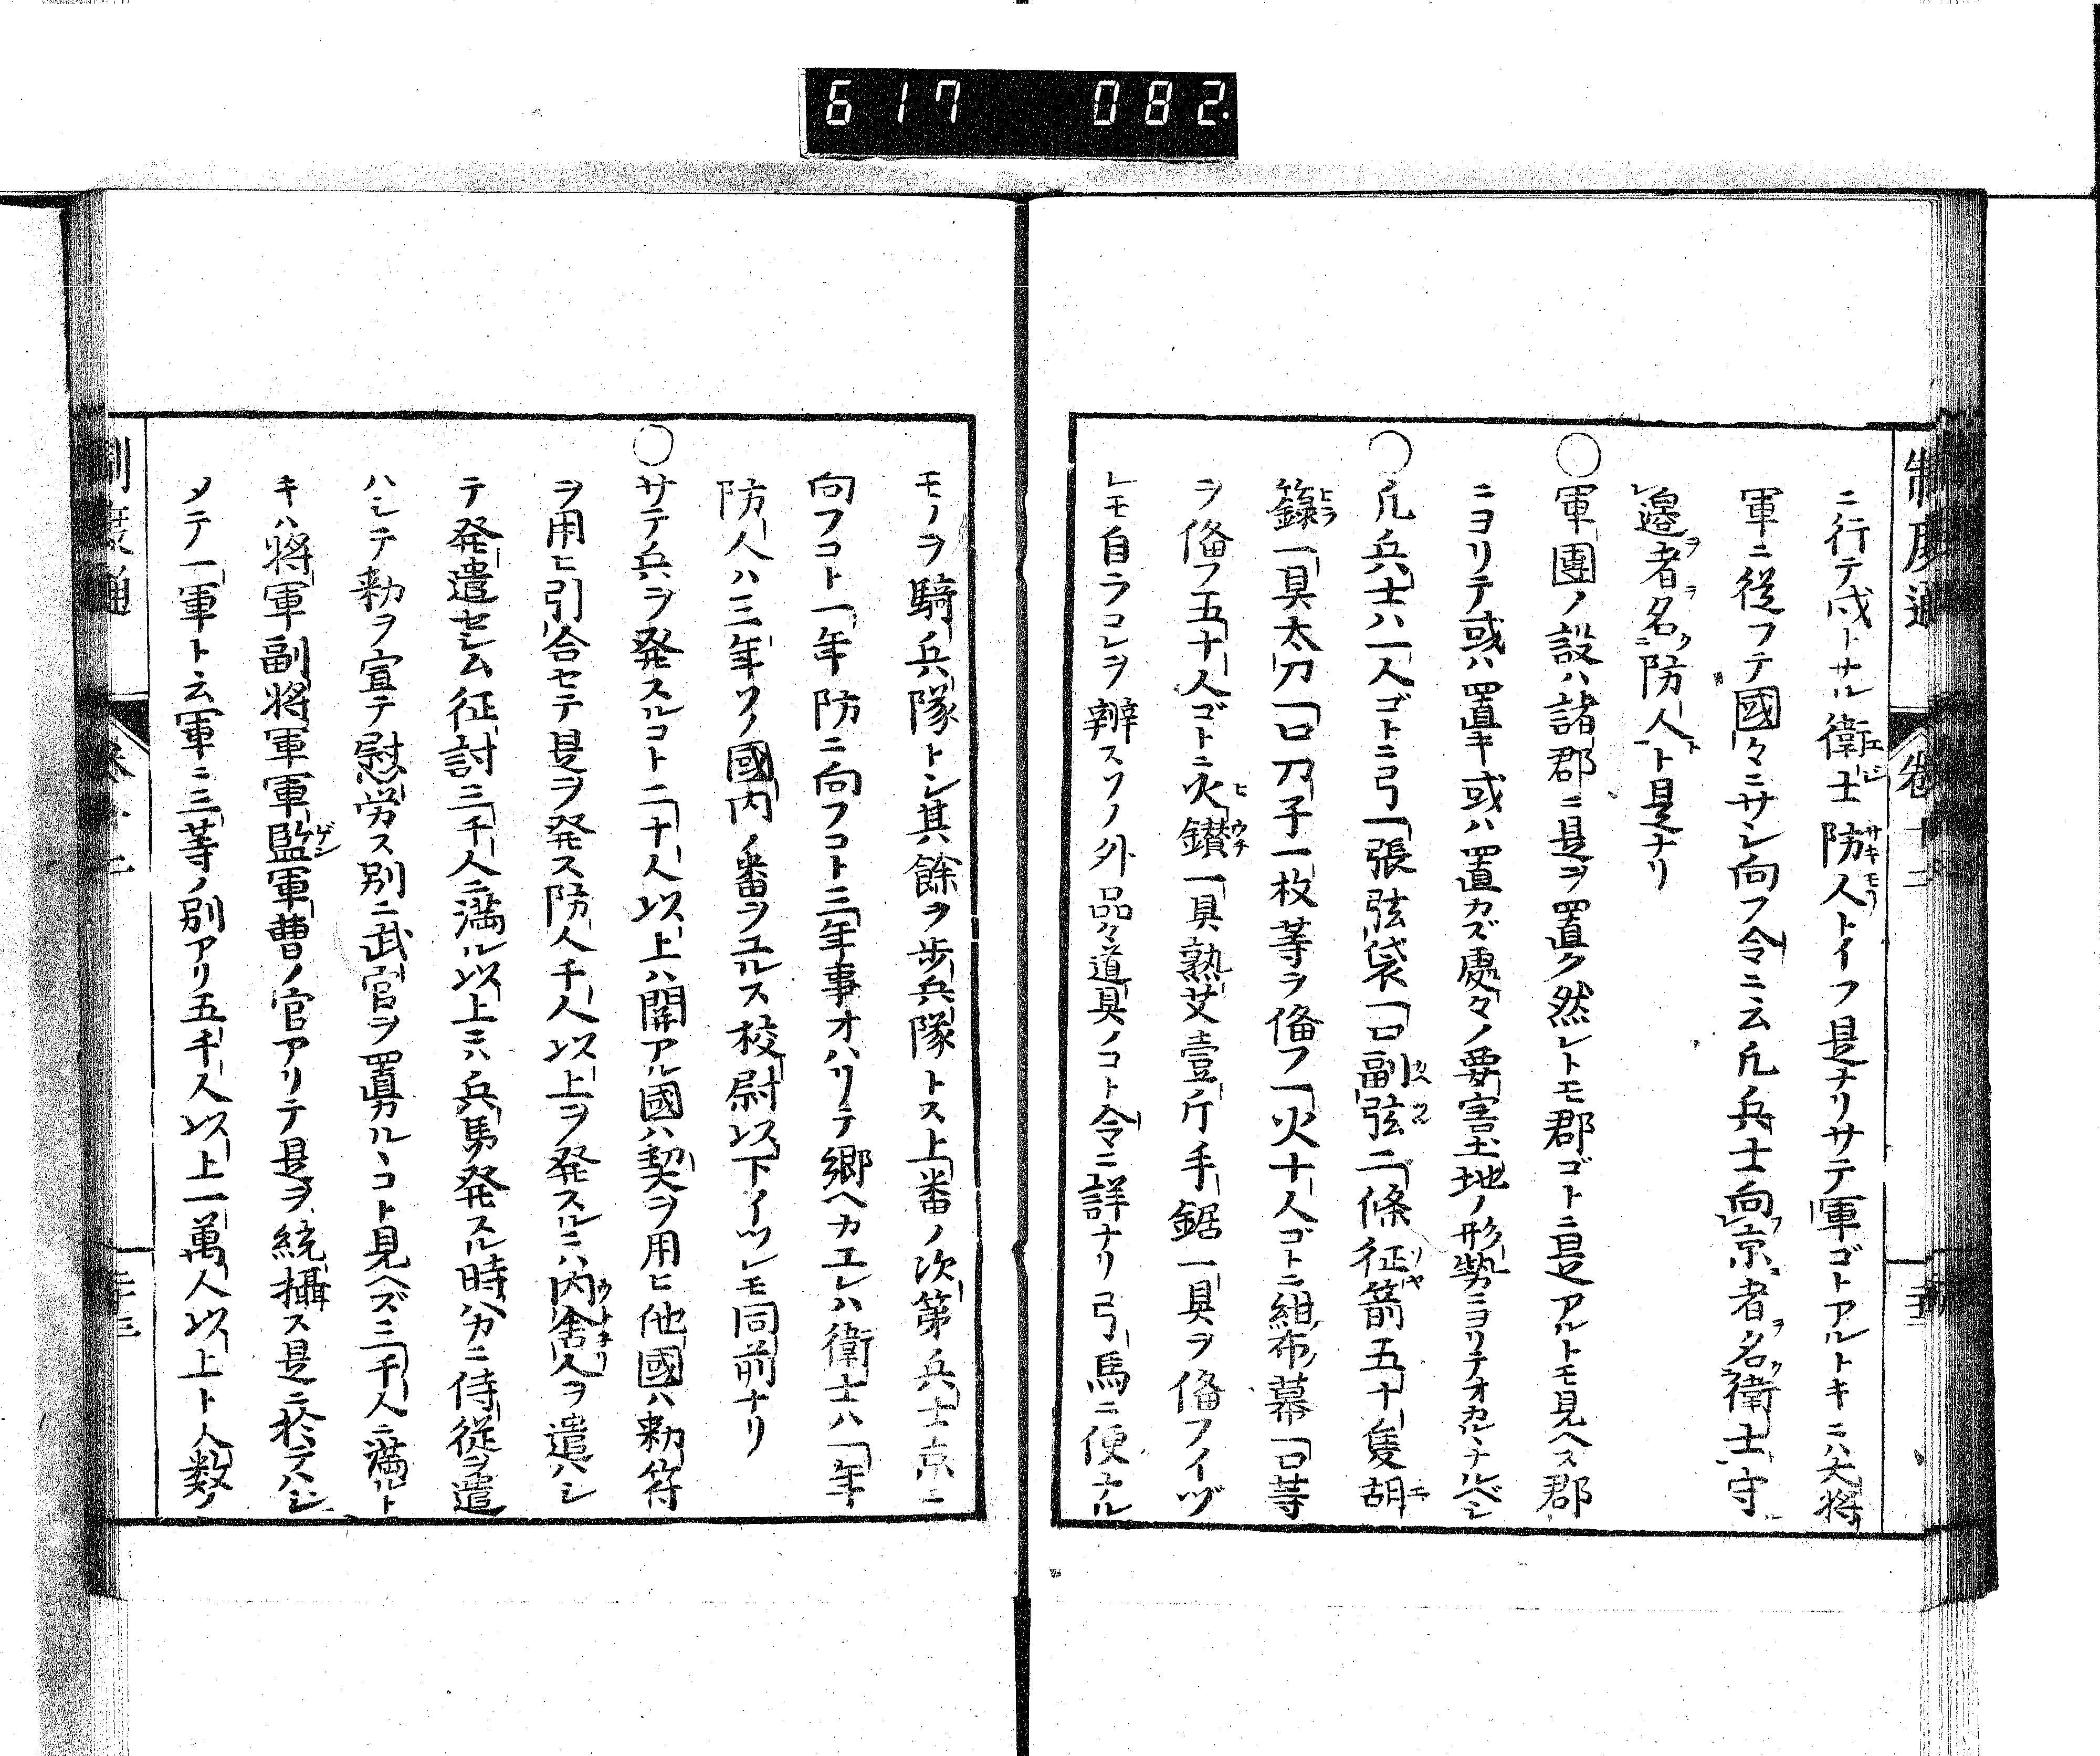 617 082.
制度通 卷十二
ニ行テ戍トサル衛士防人トイフ是ナリサテ軍ゴトアルトキニハ大将
軍ニ從フテ國々ニサシ向フ令ニ云凡兵士向京者名衛士守
邊者名防人ト是ナリ
○軍團ノ設ハ諸郡ニ是ヲ置ク然レトモ郡ゴトニ是アルトモ見ヘス郡
ニヨリテ或ハ置キ或ハ置カズ處々ノ要害土地ノ形勢ニヨリテオカルヽナルベシ
○凡兵士ハ一人ゴトニ弓一張弦袋一口副弦二條征箭五十隻胡
籙一具太刀一口刀子一枚等ヲ俻フ一火十人ゴトニ紺布幕一口等
ヲ俻フ五十人ゴトニ火鑚一具熟艾壹斤手鋸一具ヲ俻フイヅ
レモ自ラコレヲ辨スソノ外品々道具ノコト令ニ詳ナリ弓馬ニ便ナル
モノヲ騎兵隊トシ其餘ヲ歩兵隊トス上番ノ次第兵士京ニ
向フコト一年防ニ向フコト三年事オハリテ郷ヘカエレハ衛士ハ一年
防人ハ三年ソノ國内ノ番ヲユルス校尉以下イツレモ同前ナリ
○サテ兵ヲ発スルコト二十人以上ハ關アル國ハ契ヲ用ヒ他國ハ勅符
ヲ用ヒ引合セテ是ヲ発ス防人千人以上ヲ発スルニハ内舎人ヲ遣ハシ
テ発遣セシム征討三千人ニ満ル以上ニハ兵馬発スル時ハカニ侍従ヲ遣
ハシテ勅ヲ宣テ慰労ス別ニ武官ヲ置カルヽコト見ヘズ三千人ニ満ルト
キハ将軍副将軍軍監軍曹ノ官アリテ是ヲ統攝ス是ニ於テハジ
メテ一軍ト云軍ニ三等ノ別アリ五千人以上一萬人以上ト人数ノ